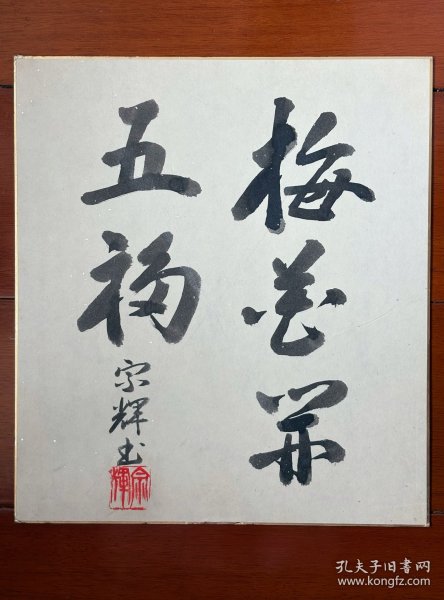 梅花開
五福
宗輝書
宗輝
孔夫子旧书网
www.kongfz.com